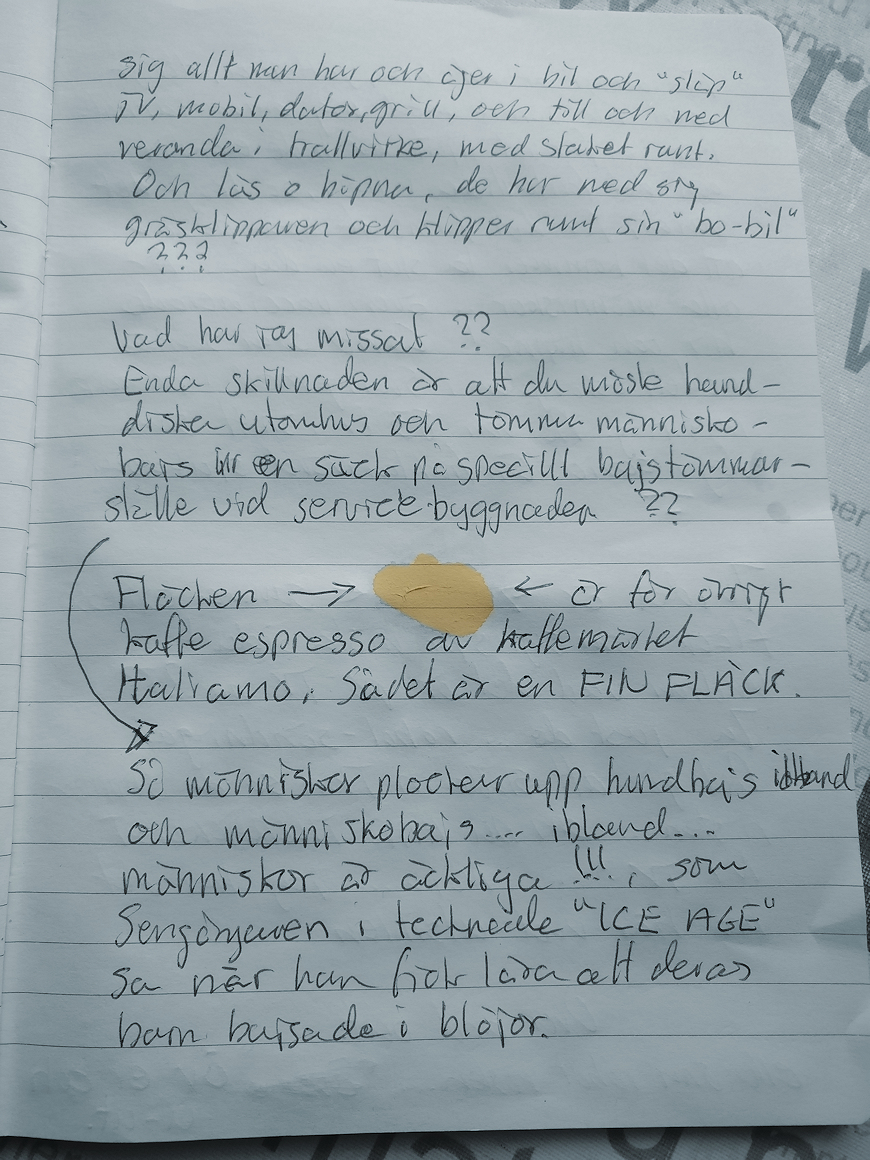 sig allt man har och äger i bil och "släp"
TV, mobil, dator, grill, och till och med
veranda i trallvirke, med staket runt.
Och läs o häpna, de har med sig
gräsklipparen och klipper runt sin "bo-bil"
???
Vad har jag missat ??
Enda skillnaden är att du måste hand-
diska utomhus och tömma människo-
bajs ur en säck på speciellt bajstömmar-
ställe vid servicebyggnaden ??
Fläcken → ← är för övrigt
kaffe espresso av kaffemärket
Italiamo. Sådet är en FIN FLÄCK.
Så människor plockar upp hundbajs ibland
och människobajs.... ibland...
människor är äckliga !!!, som
Sengångaren i tecknade "ICE AGE"
sa när han fick lära att deras
barn bajsade i blöjor.